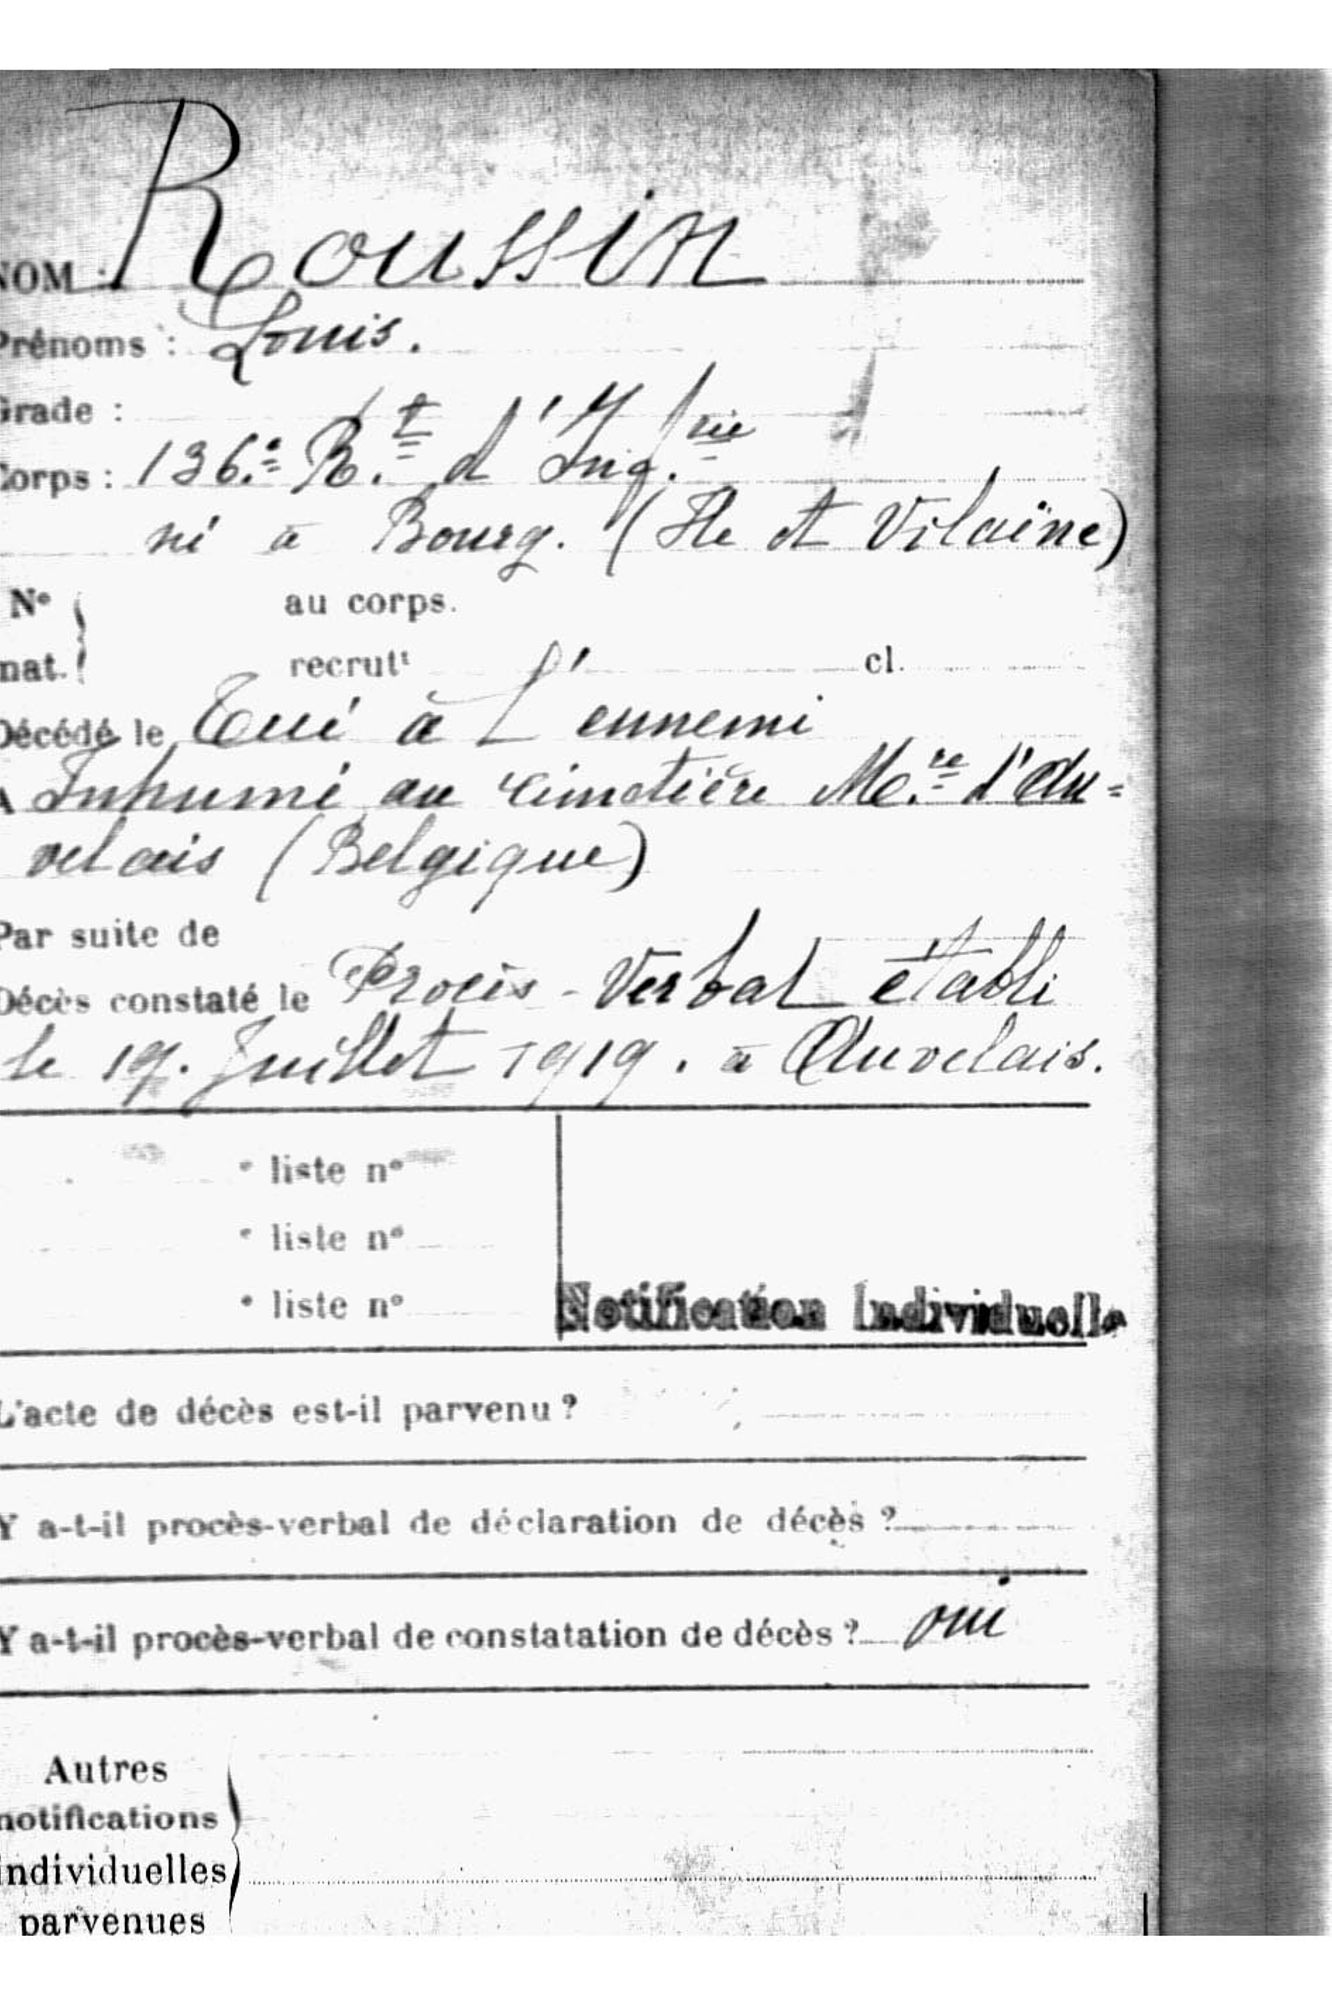 NOM : Roussin
Prénoms : Louis.
Grade :
Corps : 136.e R.t d'Inf.rie
né à Bourg. (Ile et Vilaine)
N° au corps.
mat. recrutt cl.
Décédé le Tué à l'ennemi
A Inhumé au cimetière Me.re d'Au=
velais (Belgique)
Par suite de
Décès constaté le Procès-Verbal établi
le 19. Juillet 1919. à Auvelais.
liste n°
liste n°
liste n°
Notification Individuelle
L'acte de décès est-il parvenu ?
Y a-t-il procès-verbal de déclaration de décès ?
Y a-t-il procès-verbal de constatation de décès ? oui
Autres
notifications
individuelles
parvenues